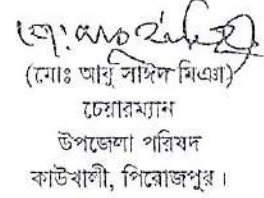 (মোঃ আবু সাঈদ মিঞা)
চেয়ারম্যান
উপজেলা পরিষদ
কাউখালী, পিরোজপুর।